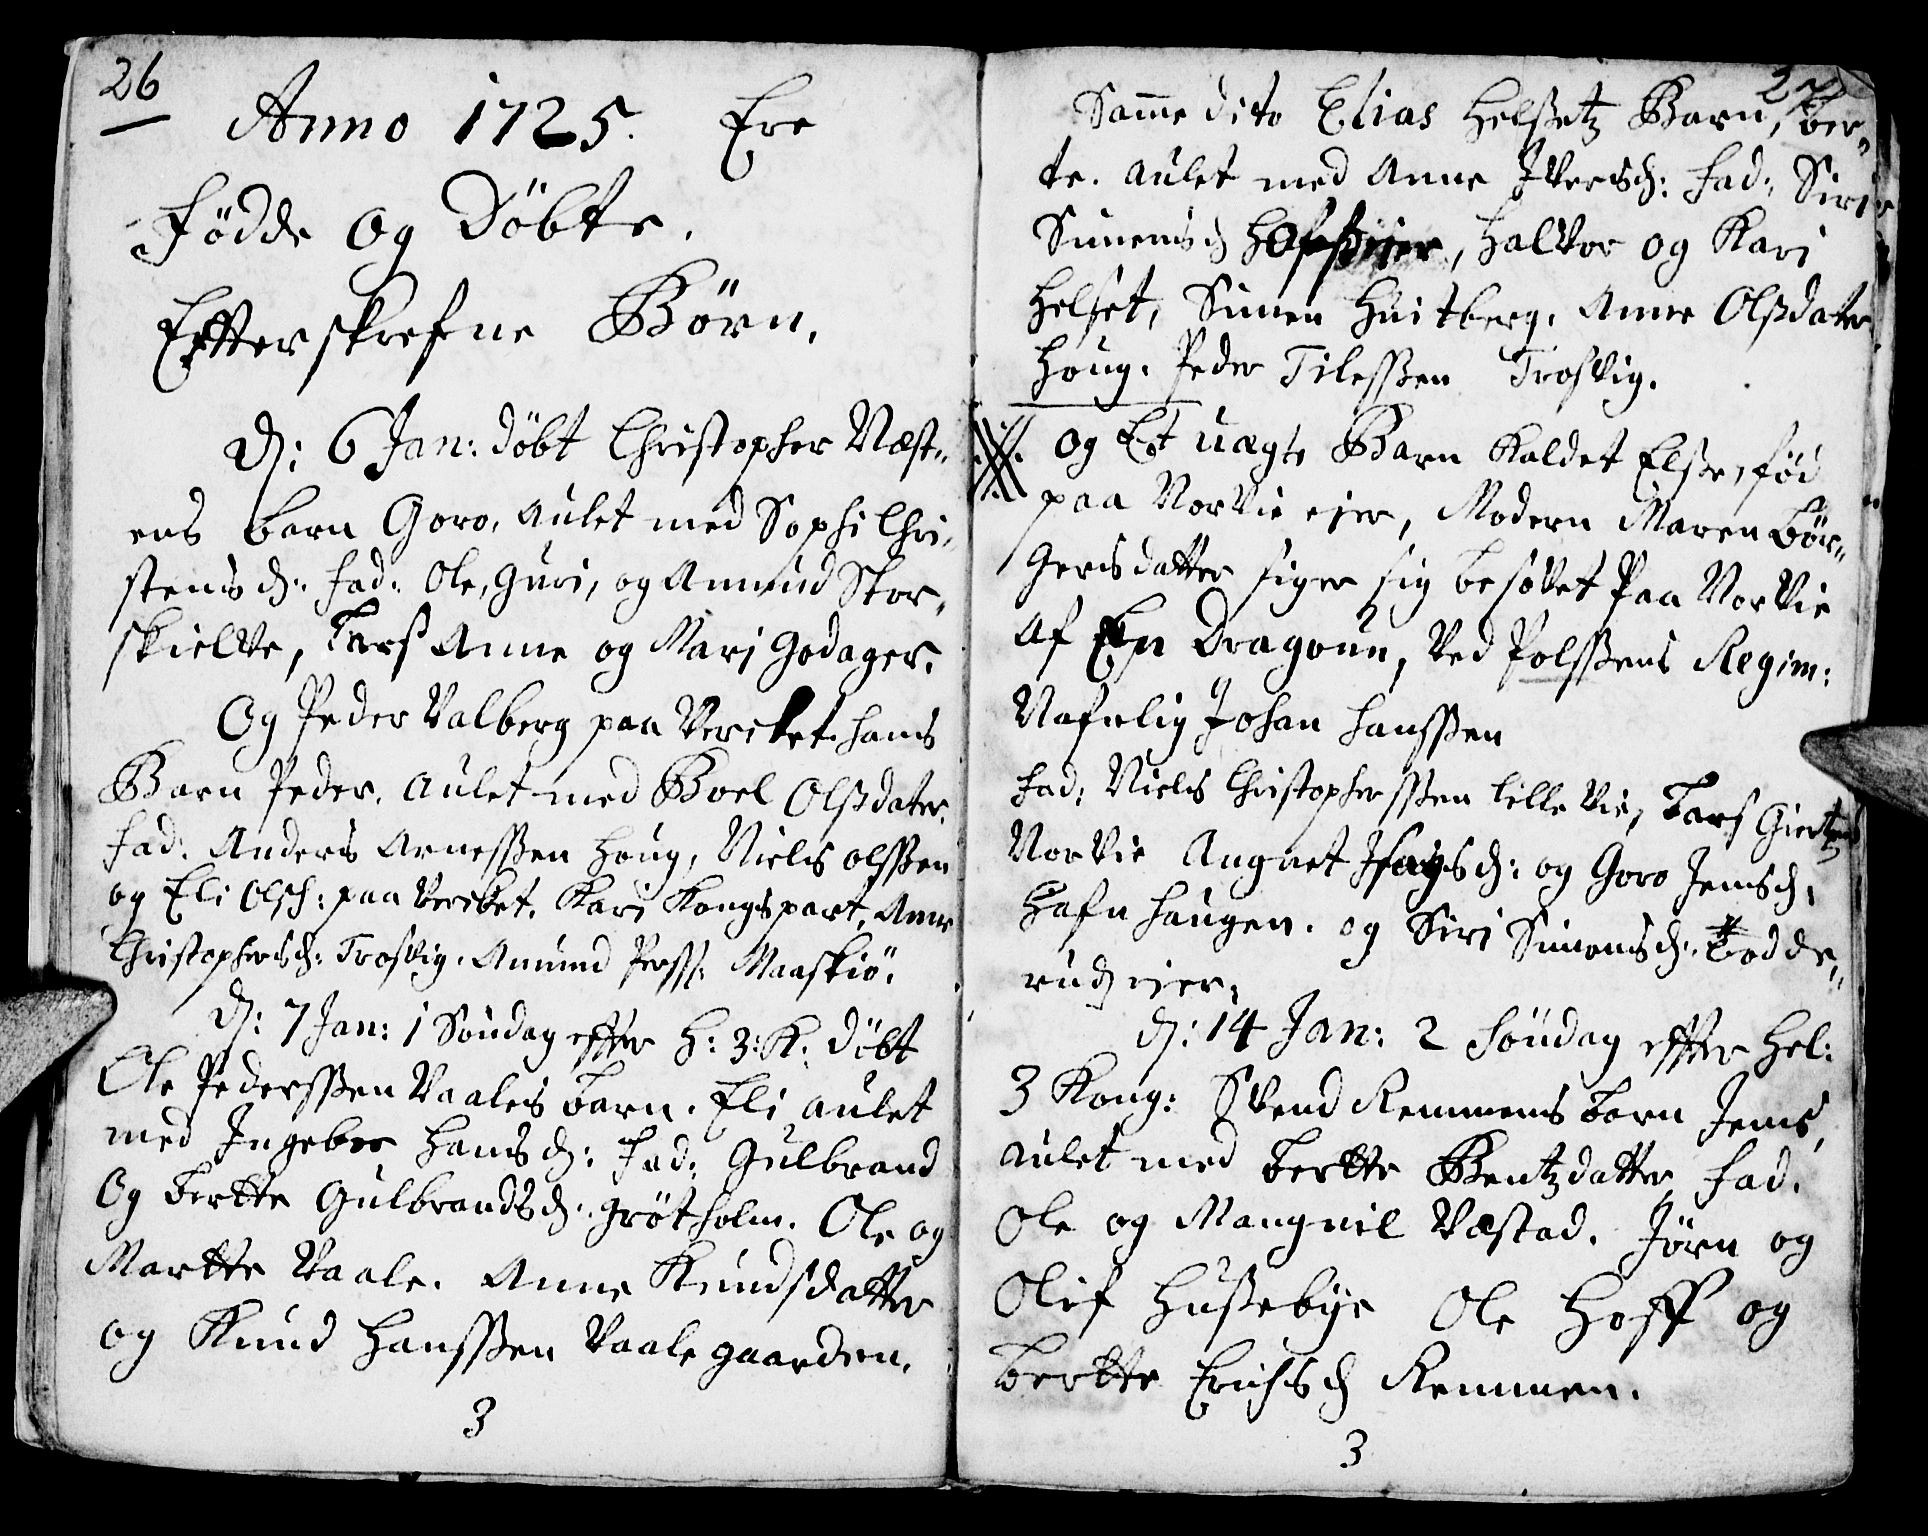 26
Anno 1725. Ere
Födde og Döbte.
Effterskrefne Börn.
D: 6 Jan: döbt Christopher Næst„
ens barn Goro, aulet med Sophi Chri„
stensd: Fad: Ole, Guri, og Amund Stor„
skielve, Lars Anne og Mari Godager.
Og Peder Valberg paa Verket hans
Barn Peder. Aulet med Boel Olsdater.
Fad: Anders Arnesßen Houg, Niels Olsßen
og Eli Olsd: paa Verket. Kari Kongspart, Anne
Christophersd: Trosvig. Amund Perss: Maaskiö.
D: 7 Jan: 1 Söndag effter H: 3: K: döbt
Ole Pedersßen Vaales barn. Eli aulet
med Ingebor Hansd: Fad: Gulbrand
Og Bertte Gulbrandsd: Grötholm. Ole og
Martte Vaale. Anne Knudsdatter
og Knud Hansßen Vaale gaarden.
3
27
Samme dito Elias Helßetz Barn, Ber„
te. aulet med Anne Iversd: Fad: Siri
Simensd, Halvor og Kari
Helset, Simen Huitberg. Anne Olßdater
Houg. Peder Tilesßen Trosvig.
Og Et uægte Barn kaldet Elße, föd
paa Norvie eier, Modern Maren Bör„
gersdatter siger sig besövet Paa Norvie
af En Dragoun, ved Polsßens Regim:
Nafnlig Johan Hansßen
Fad: Niels Christophersßen Lille Vie, Lars
Norvie Angnet d: og Goro Jensd:
Hafnhaugen. og Siri Simonsd: Todde„
rud eier.
D: 14 Jan: 2 Söndag effter Hel:
3 Kong: Svend Remmens barn Jens,
aulet med Bertte Bentzdatter Fad.
Ole og Mangnil Væstad. Jörn og
Olif Hußebye Ole Hoff og
Bertte Erichsd Remmen.
3